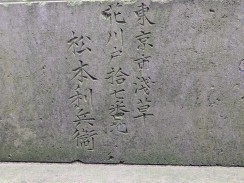 東京市淺草
花川戸拾七番地
松本利兵衞